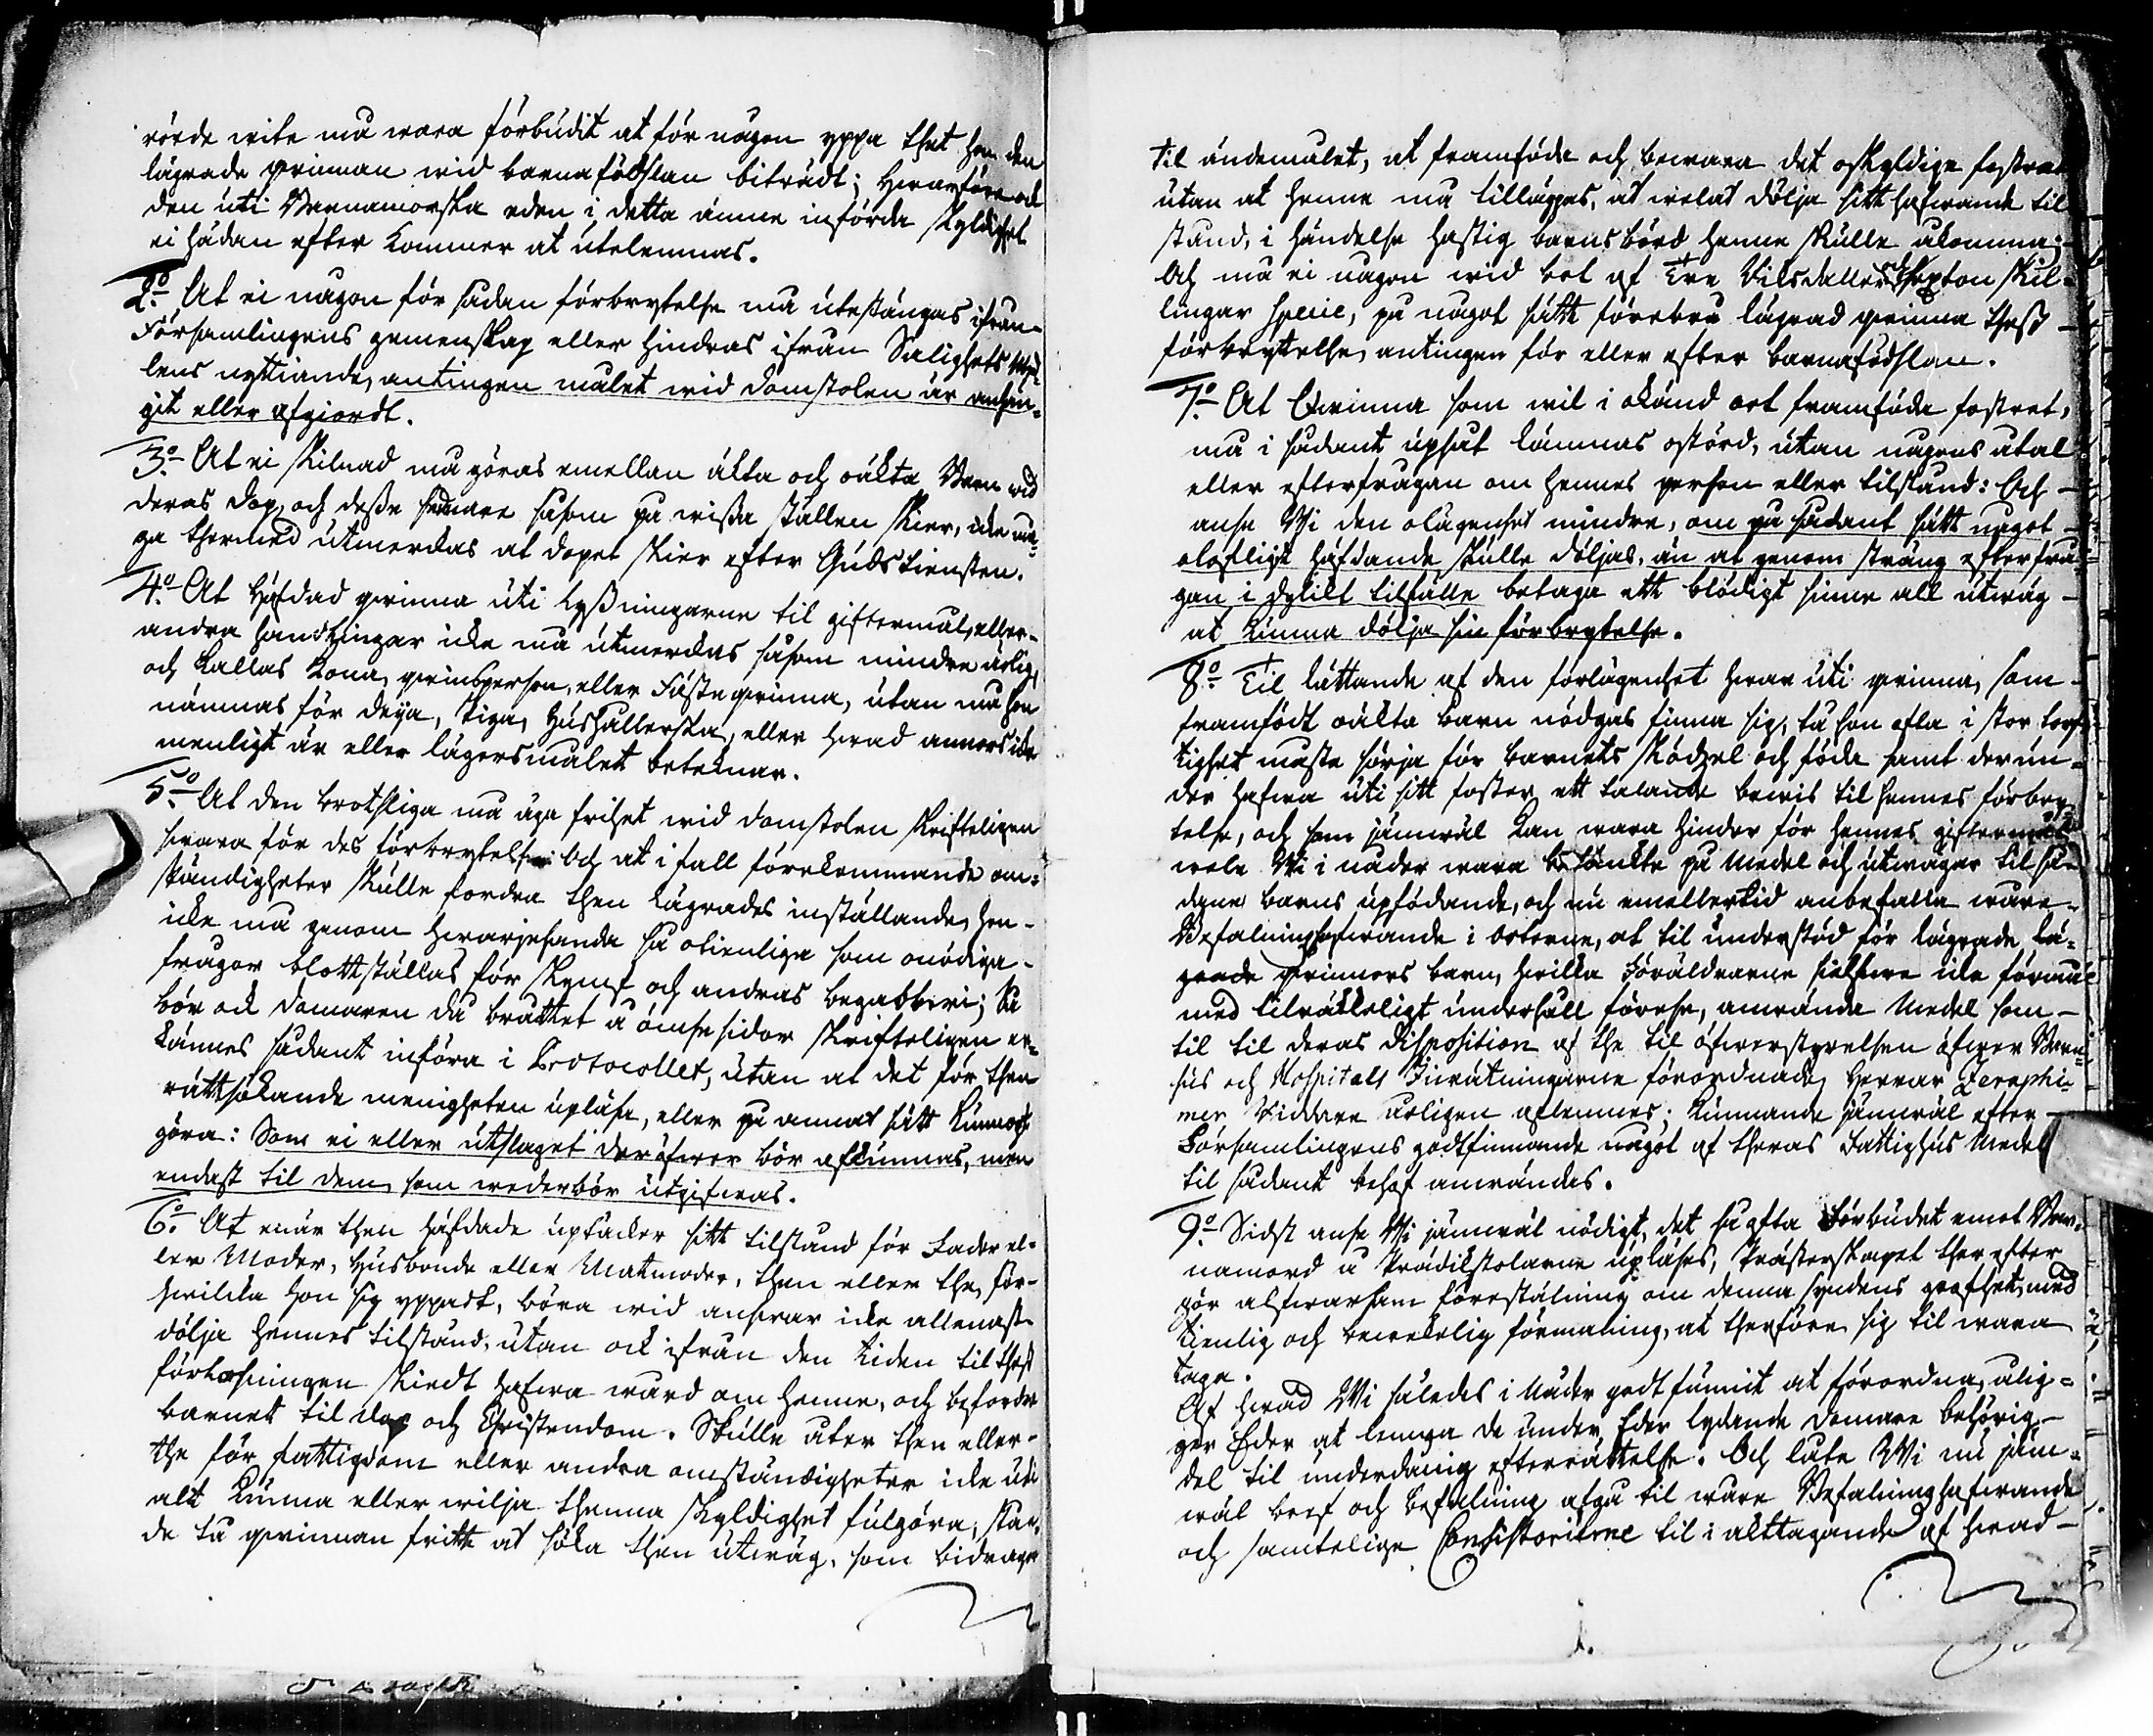 rörde wite må wara förbudit at för någon yppa thet hon den
lägrade qwinnan wid barnafödslan biträdt; Hwarföre ock
den uti Barnamorska eden i detta ämne införda skyldighet
ei hädan efter kommer at utelemnas.
2:o At ei någon för sådan förbrytelse må utestängas ifrån
Församlingens gemenskap eller hindras ifrån Salighets Med-
lens nyttiande, antingen målet wid domstolen är anhän-
git eller afgiordt.
3:o At ei skilnad må göras emellan äkta och oäkta Barn wid
deras dop, och desse sednare såsom på wissa ställen skier, icke må-
ga thermed utmerckas at dopet skier efter Gudstiensten.
4:o At Häfdad qwinna uti Lyßningarne til giftermål, eller
andra handlingar icke må utmerckas såsom mindre ärlig,
och kallas Kona, qwinsperson, eller Fäste qwinna, utan må hon
nämnas för deija, Piga, Hushållerska, eller hwad annors icke
menligt är eller lägersmålet betecknar.
5:o At den brotsliga må äga frihet wid domstolen skrifteligen
swara för des förbrytelse: Och at i fall förekommande om-
ständigheter skulle fordra then Lägrades inställande, hon
icke må genom hwarjehanda så otienliga som onödiga
frågor blottställas för skymf och andras begabberi; Så
bör ock domaren då brottet å ömse sidor skrifteligen er-
kännes sådant införa i Protocollet, utan at det för then
rättsökande menigheten upläsa, eller på annat sätt kunnogt
göra: Som ei eller utslaget deröfwer bör afkunnas, men
endast til dem som wederbör utgifwas.
6:o At enär then häfdade uptäcker sitt tilstånd för Fader el-
ler Moder, Husbonde eller Matmoder, then eller the, för
hwilcka hon sig yppadt, böra wid answar icke allenast
dölja hennes tilstånd, utan ock ifrån den tiden til theß
förlossningen skiedt hafwa wård om henne, och befordra
barnet til dop och Christendom. Skulle åter then eller
the för fattigdom eller andra omständigheter icke uti
alt kunna eller wilja thenna skyldighet fulgöra, stån-
de tå qwinnan fritt at söka then utwäg, som bidrager
til ändemålet, at framföda och bewara det oskyldiga fostret
utan at henne må tilläggas, at welat dölja sitt hafwande til
stånd, i händelse hastig barnsbörd henne skulle åkomma;
Och må ei någon wid bot af Tre Riksdaler Sexton Skil-
lingar Specie, på något sätt förebrå lägrad qwinna theß
förbrytelse, antingen för eller efter barnafödslan.
7:o At Qwinna som wil i okänd ort framföda fostret,
må i sådant upsåt lämnas ostörd, utan någons åtal
eller efterfrågan om hennes person eller tilstånd: Och
anse Wi den olägenhet mindre, om på sådant sätt något
olofligt häfdande skulle döljas, än at genom sträng efterfrå-
gan i dylikt tilfälle betaga ett blödigt sinne all utwäg
at kunna dölja sin förbrytelse.
8:o Til lättande af den förlägenhet hwaruti qwinna, som
framfödt oäkta barn nödgas finna sig, tå hon ofta i stor torf-
tighet måste sörja för barnets skötzel och föda samt derun-
der hafwa uti sitt foster ett talande bewis til hennes förbry-
telse, och som jämwäl kan wara hinder för hennes giftermål
wele Wi i nåder wara betänckte på medel och utwägar til så-
dane barns upfödande, och nu emellertid anbefalle wåre
Befalningshafwande i Orterne, at til understöd för lägrade, lä-
grade qwinnors barn, hwilka Föräldrarne sielfwe icke förmå
med tilräckeligt underhåll förese, anwända Medel som
til til deras disposition af the til öfwerstyrelsen öfwer Barn-
hus och Hospitals Inrättningarne förordnade Herrar Seraphi-
mer Riddare årligen aflemnes; kunnande jämwäl efter
Församlingens godtfinnande något af theras Fattighus Medel
til sådant behof anwändas.
9:o Sidst anse Wi jämwäl nödigt, det så ofta Förbudet emot Bar-
namord å Predikstolarne upläses, Prästerskapet ther efter
gör alfwarsam föreställning om denna syndens grofhet, med
tienlig och bewekelig förmaning, at therföre sig til wara
taga.
Af hwad Wi således i Nåder godtfunnit at förordna, ålig-
ger Eder at lemna de under Eder lydande Domare behörig
del til underdånig efterrättelse. Och låte Wi nu jäm-
wäl bref och befalning afgå til wåre Befalningshafwande
och samtelige Consistorierne til i akttagande af hwad